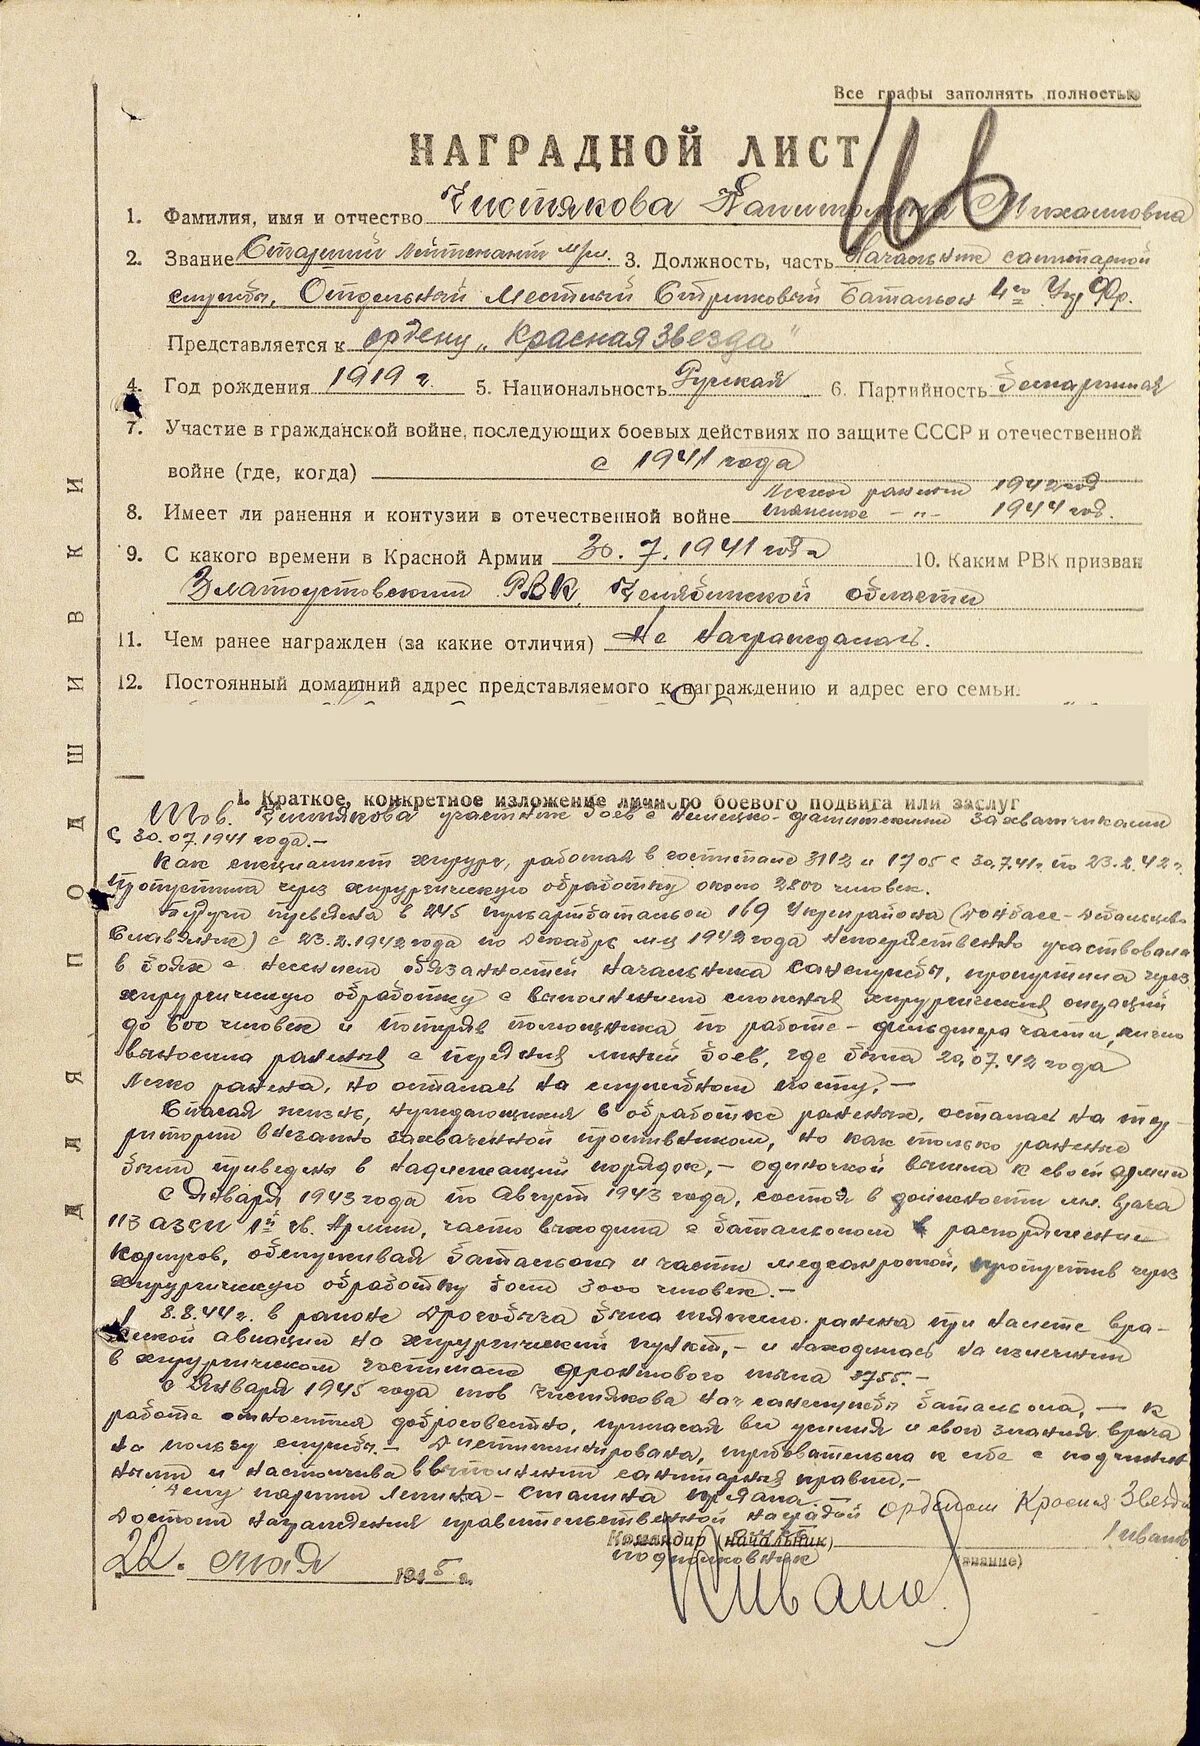 Все графы заполнять полностью
НАГРАДНОЙ ЛИСТ
1. Фамилия, имя и отчество Чистякова Капитолина Михайловна
2. Звание Старший лейтенант м/сл. 3. Должность, часть Начальник санитарной
службы, Отдельный Местный Стрелковый Батальон 4го Укр. Фр.
Представляется к ордену „Красная Звезда"
4. Год рождения 1919 г. 5. Национальность Русская 6. Партийность Беспартийная
7. Участие в гражданской войне, последующих боевых действиях по защите СССР и отечественной
войне (где, когда) с 1941 года
легкое ранение 1942 год
8. Имеет ли ранения и контузии в отечественной войне тяжелое -"- 1944 год.
9. С какого времени в Красной Армии 30.7.1941 года 10. Каким РВК призван
Златоустовским РВК, Челябинской области
11. Чем ранее награжден (за какие отличия) Не награждалась.
12. Постоянный домашний адрес представляемого к награждению и адрес его семьи.
I. Краткое, конкретное изложение личного боевого подвига или заслуг
Тов. Чистякова участник боев с немецко-фашистскими захватчиками
с 30.07.1941 года.-
Как специалист хирург, работая в госпитале 3112 и 1705 с 30.7.41г. по 23.2.42г.
пропустила через хирургическую обработку около 2800 человек.
Будучи переведена в 245 пульартбатальон 169 Укрепрайона (Донбасс-Дебальцево
Славянск) с 23.2.1942 года по Декабрь м-ц 1942 года непосредственно участвовала
в боях с несением обязанностей начальника санслужбы, пропустила через
хирургическую обработку с выполнением сложных хирургических операций
до 600 человек и потеряв помощника по работе - фельдшера части, лично
выносила раненых с передних линий боев, где была 20.07.42 года
легко ранена, но осталась на служебном посту.-
Спасая жизнь, нуждающихся в обработке раненых, осталась на тер-
ритории внезапно захваченной противником, но как только раненые
были приведены в надлежащий порядок,- одиночкой вышла к своей армии
С Января 1943 года по Август 1943 года, состоя в должности мл. врача
113 АЗСП 1й Гв. Армии, часто выходила с батальоном в распоряжение
корпусов, обслуживая батальоны и части медсанротой, пропустив через
хирургическую обработку более 3000 человек.-
8.8.44г. в районе Дрогобыча была тяжело ранена при налете вра-
жеской авиации на хирургический пункт,- и находилась на излечении
в хирургическом госпитале фронтового тыла 3755.-
С Января 1945 года тов Чистякова нач санслужбы батальона,- к
работе относится добросовестно, прилагая все усилия и свои знания врача
на пользу службы.- Дисциплинирована, требовательна к себе и подчинен-
ным и настойчива в выполнении санитарных правил.-
Делу партии Ленина-Сталина предана.-
Достойна награждения правительственной наградой орденом Красная Звезда
Командир (начальник)
подполковник
(звание)
22. мая 1945 г.
ДЛЯ ПОДШИВКИ